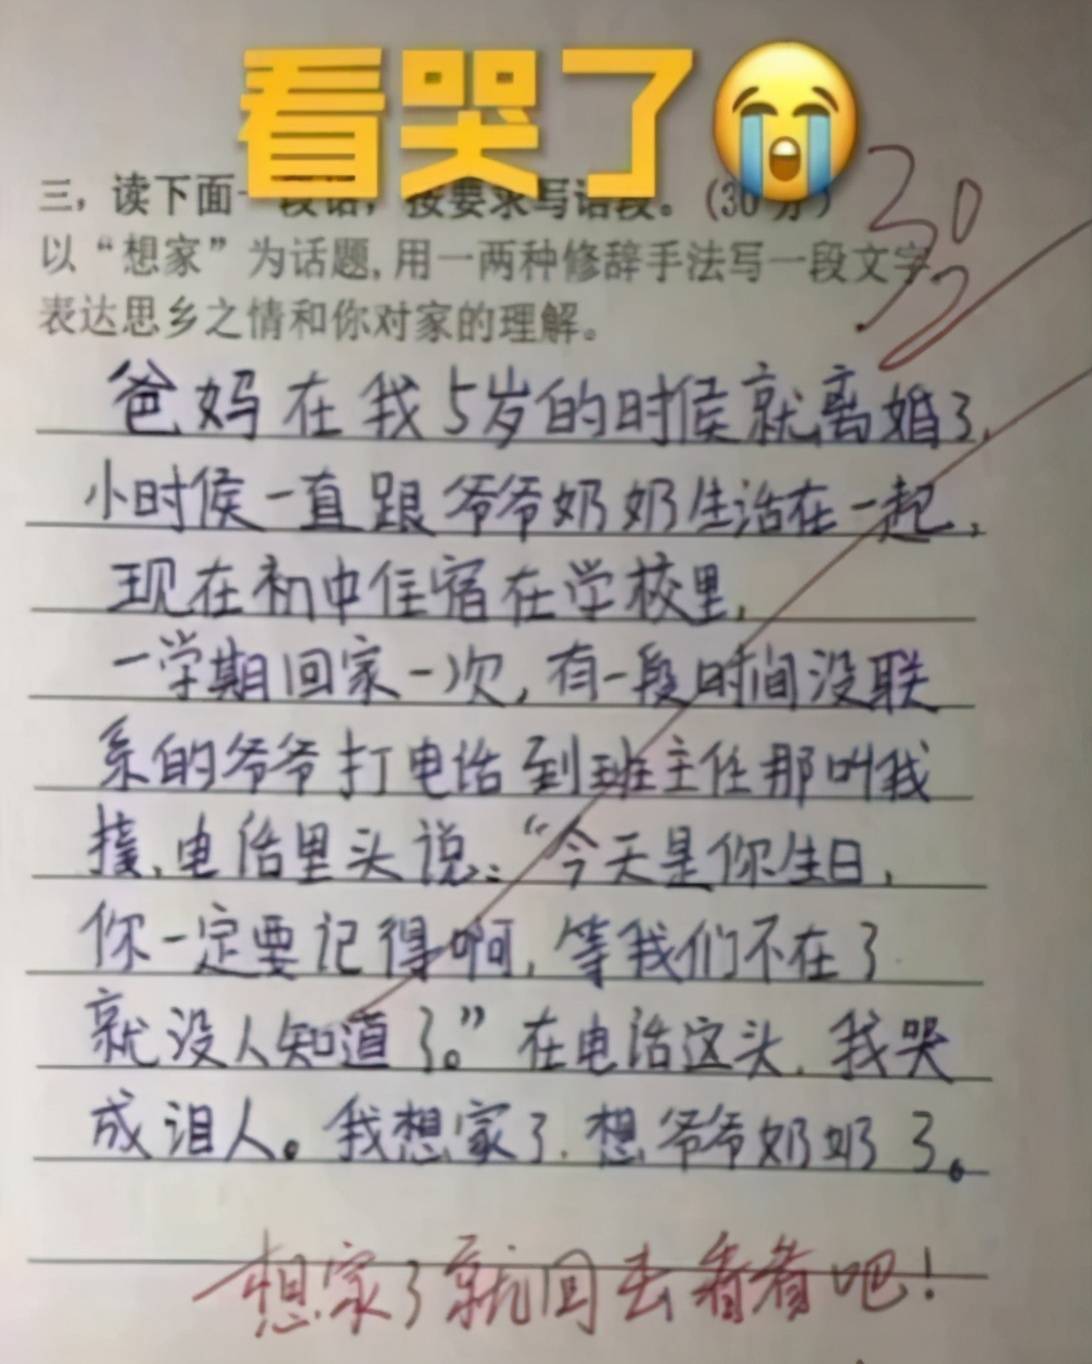 看哭了😭
三，读下面一段话，按要求写话段。（30分）
30
以“想家”为话题，用一两种修辞手法写一段文字
表达思乡之情和你对家的理解。
爸妈在我5岁的时候就离婚了，
小时候一直跟爷爷奶奶生活在一起，
现在初中住宿在学校里，
一学期回家一次，有一段时间没联
系的爷爷打电话到班主任那叫我
接，电话里头说：“今天是你生日，
你一定要记得啊，等我们不在了
就没人知道了。”在电话这头，我哭
成泪人。我想家了，想爷爷奶奶了。
想家了就回去看看吧！